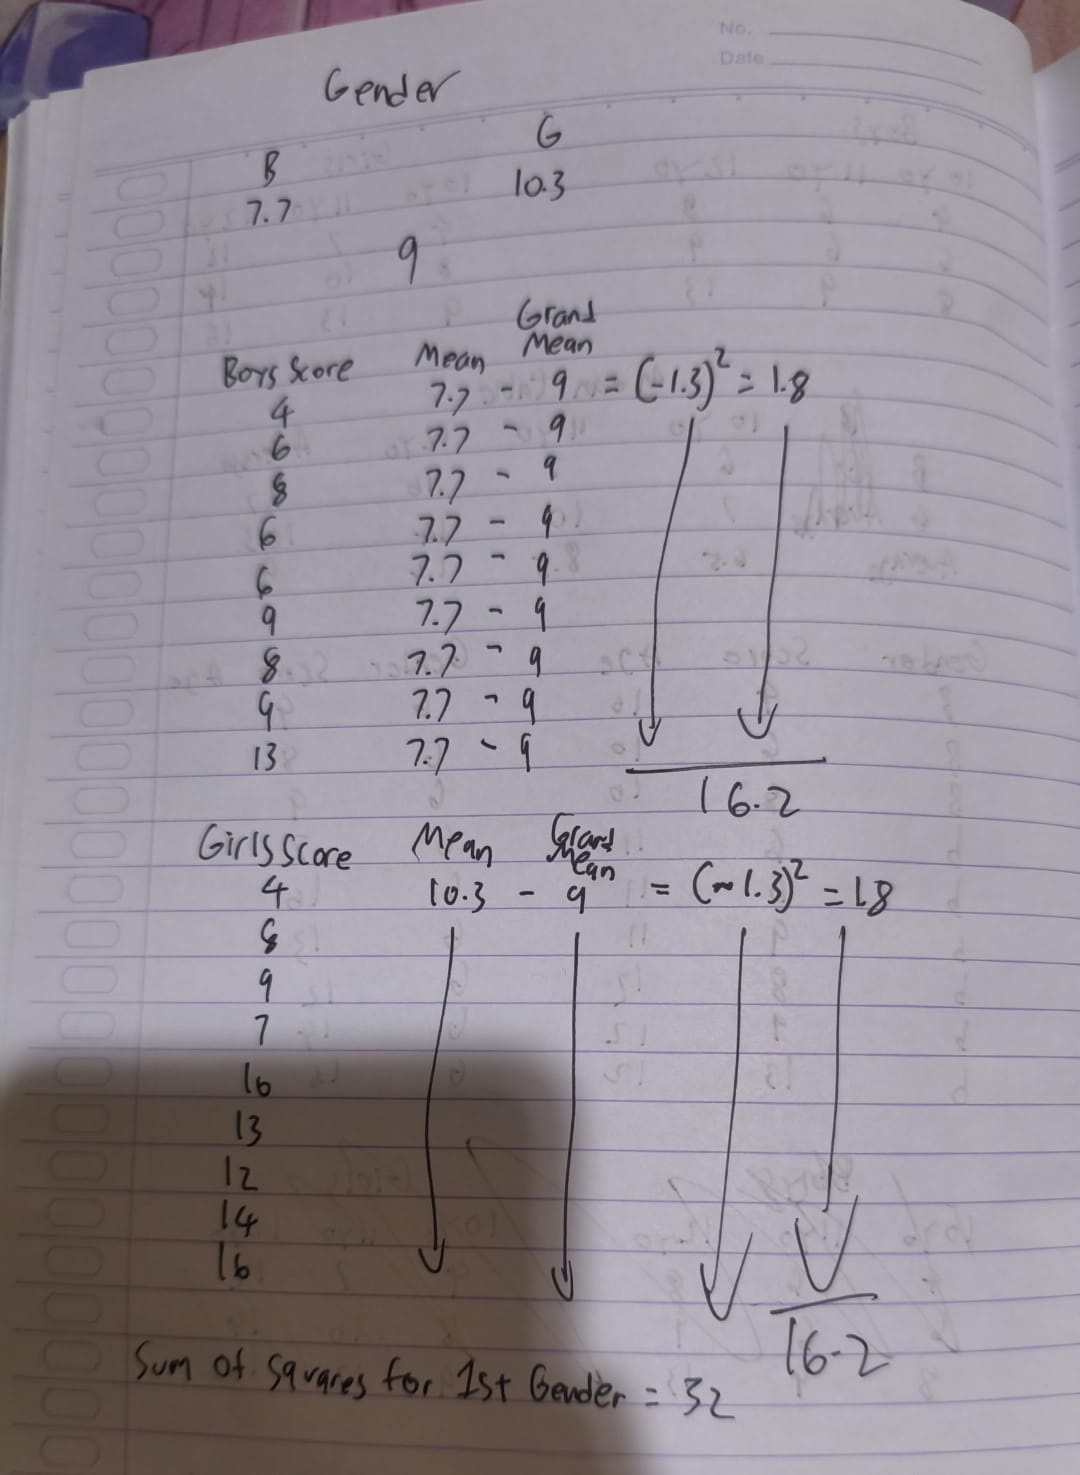 No.
Date
Gender
B G
7.7 10.3
9
Boys Score Mean Grand Mean
4 7.7 - 9 = (-1.3)² = 1.8
6 7.7 - 9
8 7.7 - 9
6 7.7 - 9
6 7.7 - 9
9 7.7 - 9
8 7.7 - 9
9 7.7 - 9
13 7.7 - 9
16.2
Girls Score Mean Grand Mean
4 10.3 - 9 = (-1.3)² = 1.8
8
9
7
10
13
12
14
16
16.2
Sum of Squares for 1st Gender = 32